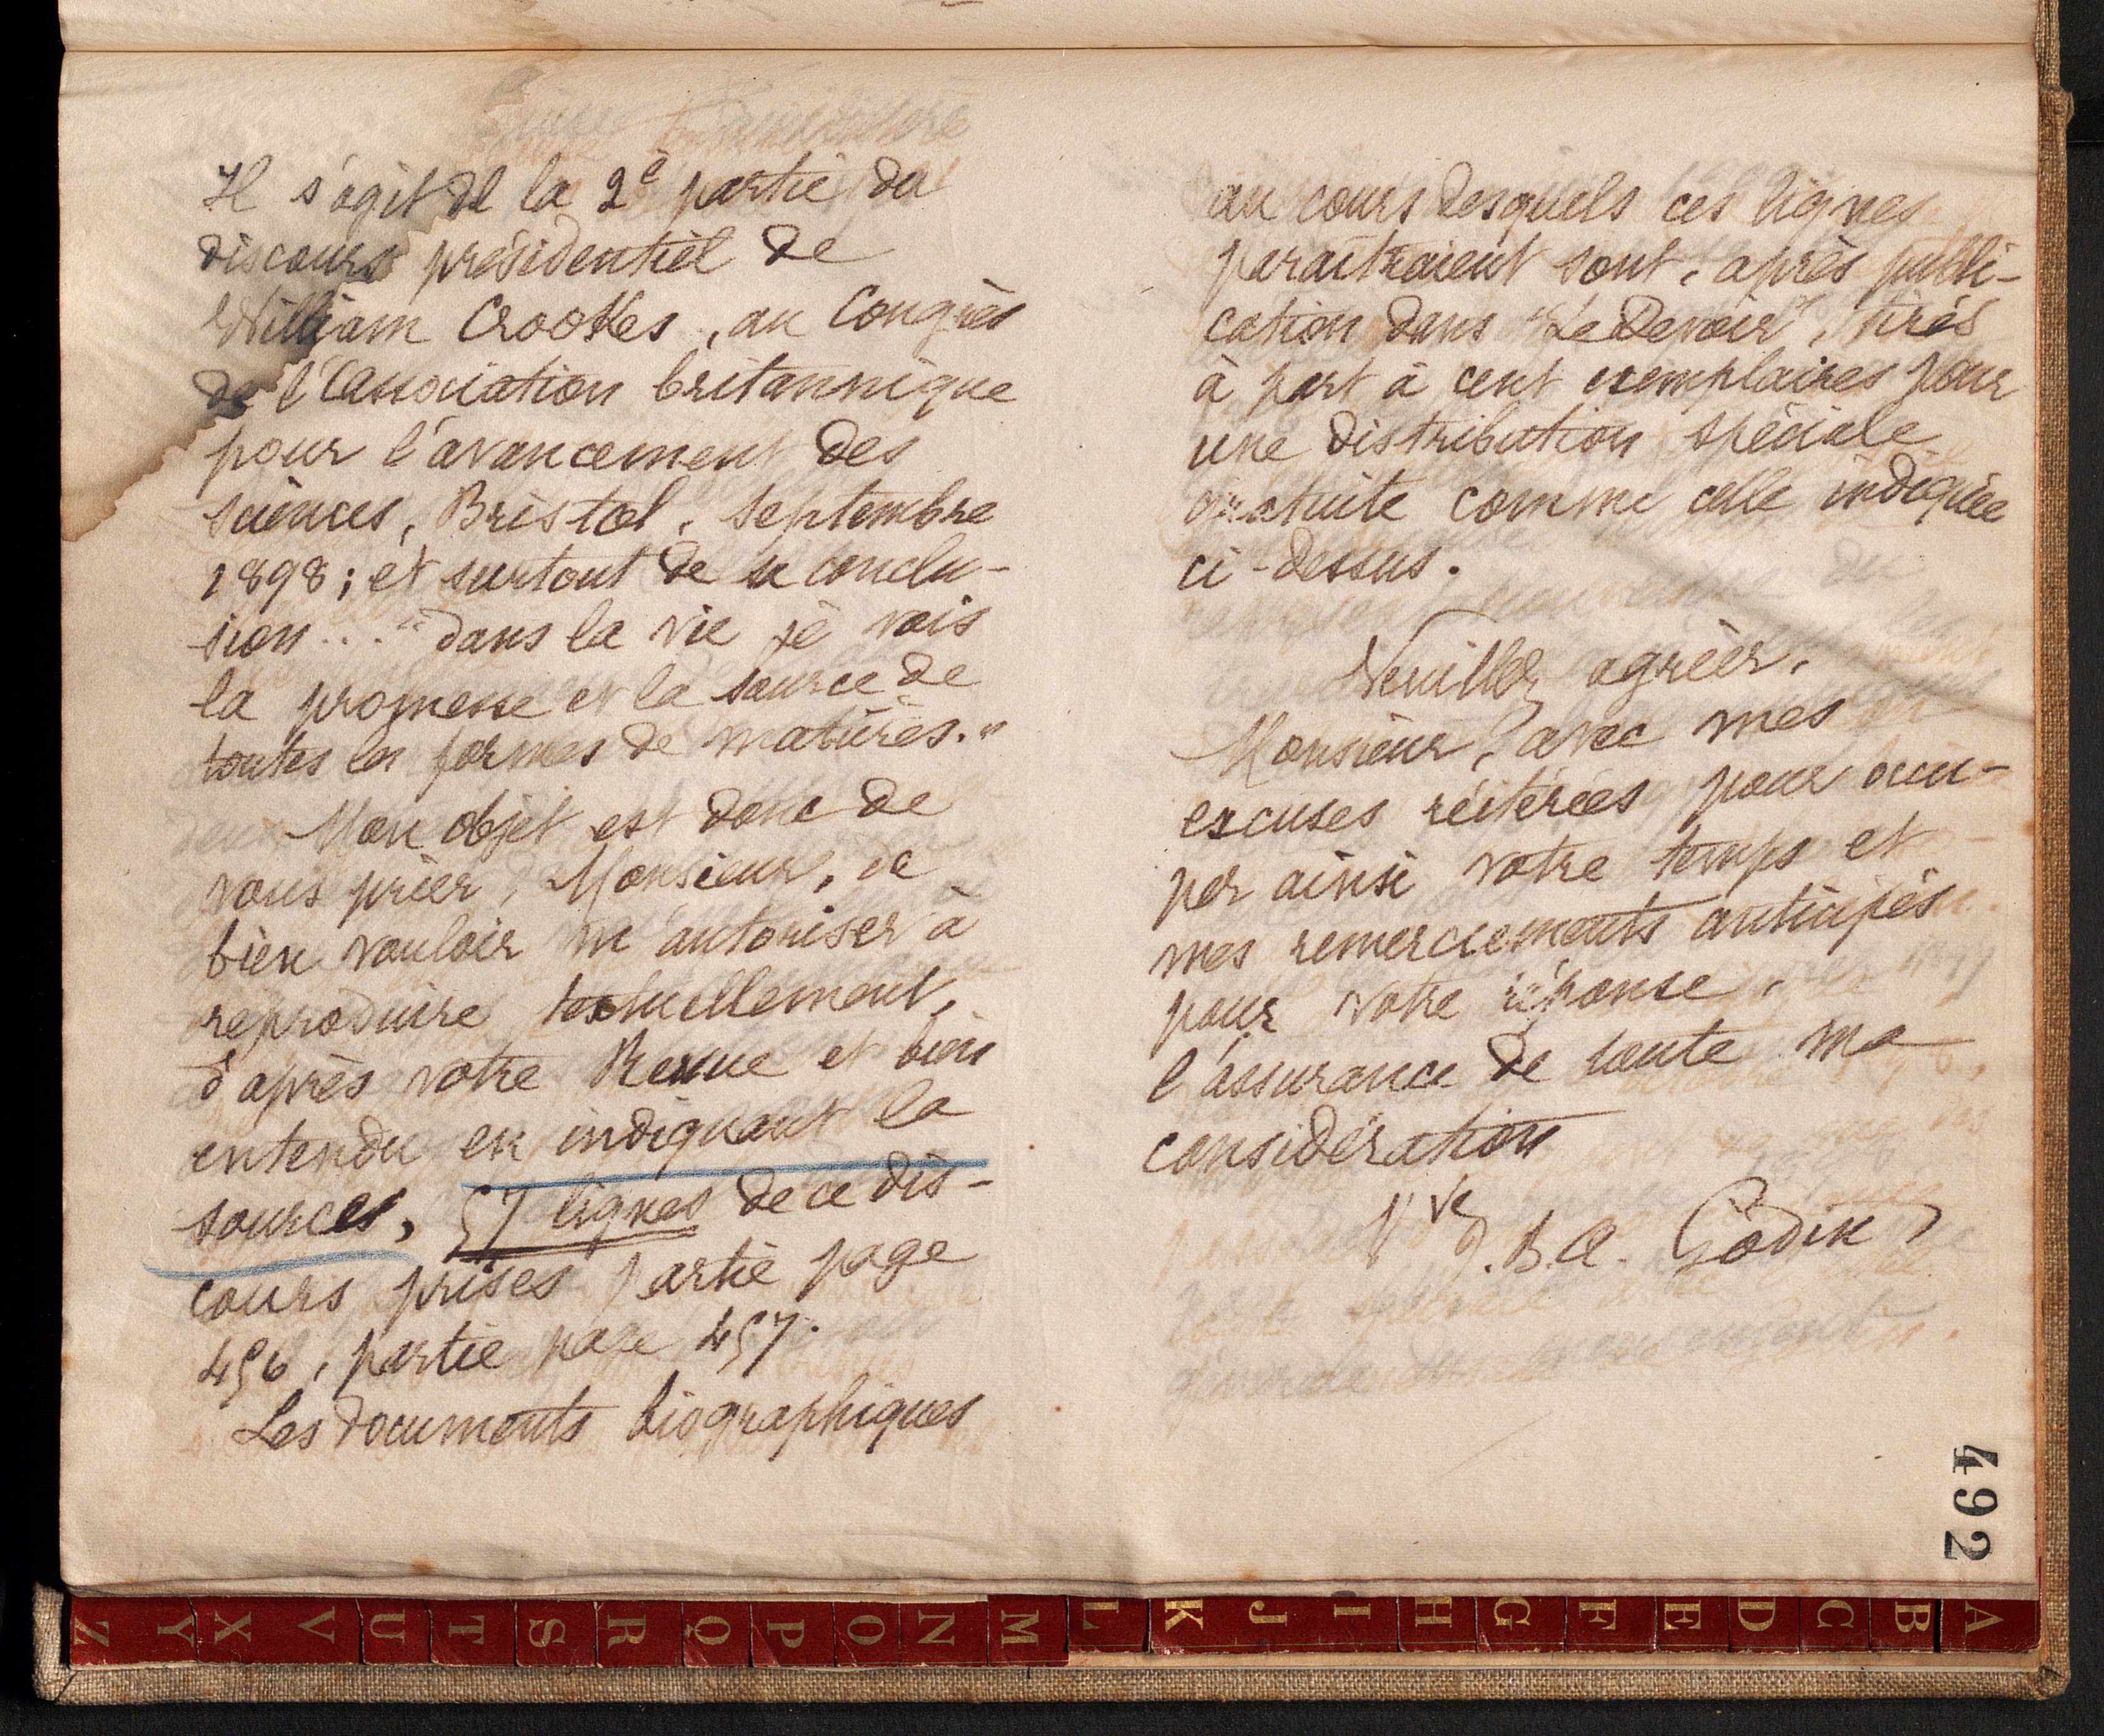 Il s'agit de la 2e partie du
discours présidentiel de
William Crookes, au Congrès
de l'Association britannique
pour l'avancement des
sciences, Bristol, septembre
1898; et surtout de sa conclu-
sion... "dans la vie je vois
la promesse et la source de
toutes les formes de matières."
Mon objet est donc de
vous prier, Monsieur, de
bien vouloir m'autoriser à
reproduire textuellement,
d'après votre Revue et bien
entendu en indiquant la
sources, 57 lignes de ce dis-
cours prises partie page
456, partie page 457.
Les documents biographiques
au cours desquels ces lignes
paraîtraient sont, après publi-
cation dans "Le Devoir", tirés
à part à cent exemplaires pour
une distribution spéciale
gratuite comme celle indiquée
ci-dessus.
Veuillez agréer,
Monsieur, avec mes
excuses réitérées pour occu-
per ainsi votre temps et
mes remerciements anticipés
pour votre réponse,
l'assurance de toute ma
considération
Vve J.B.A. Godin
492
Z Y X V U T S R Q P O N M L K J I H G F E D C B A